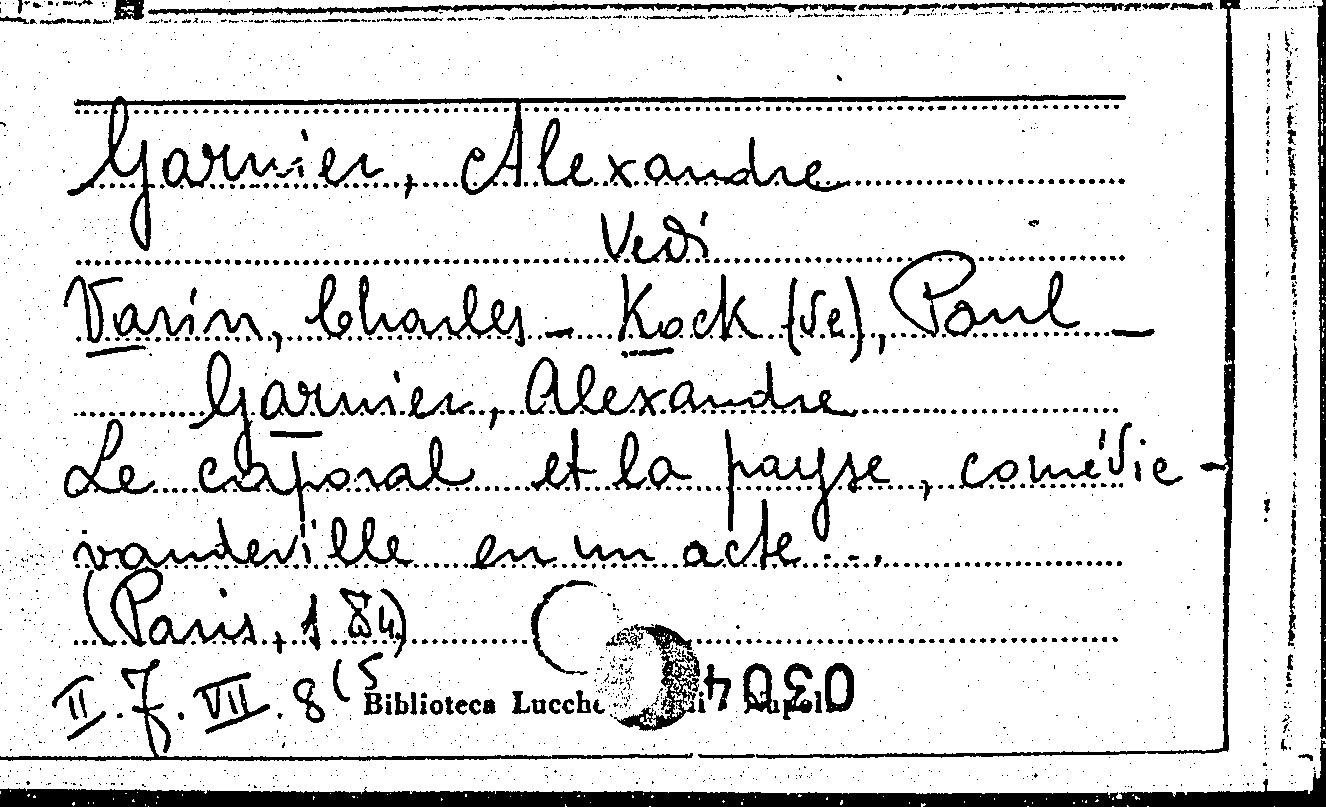 Garnier, Alexandre
Vedi
Varin, Charles - Kock (de), Paul -
Garnier, Alexandre
Le caporal et la payse, comédie-
vaudeville en un acte...
(Paris, 184.)
II. 7. VII. 8 (5
Biblioteca Lucche